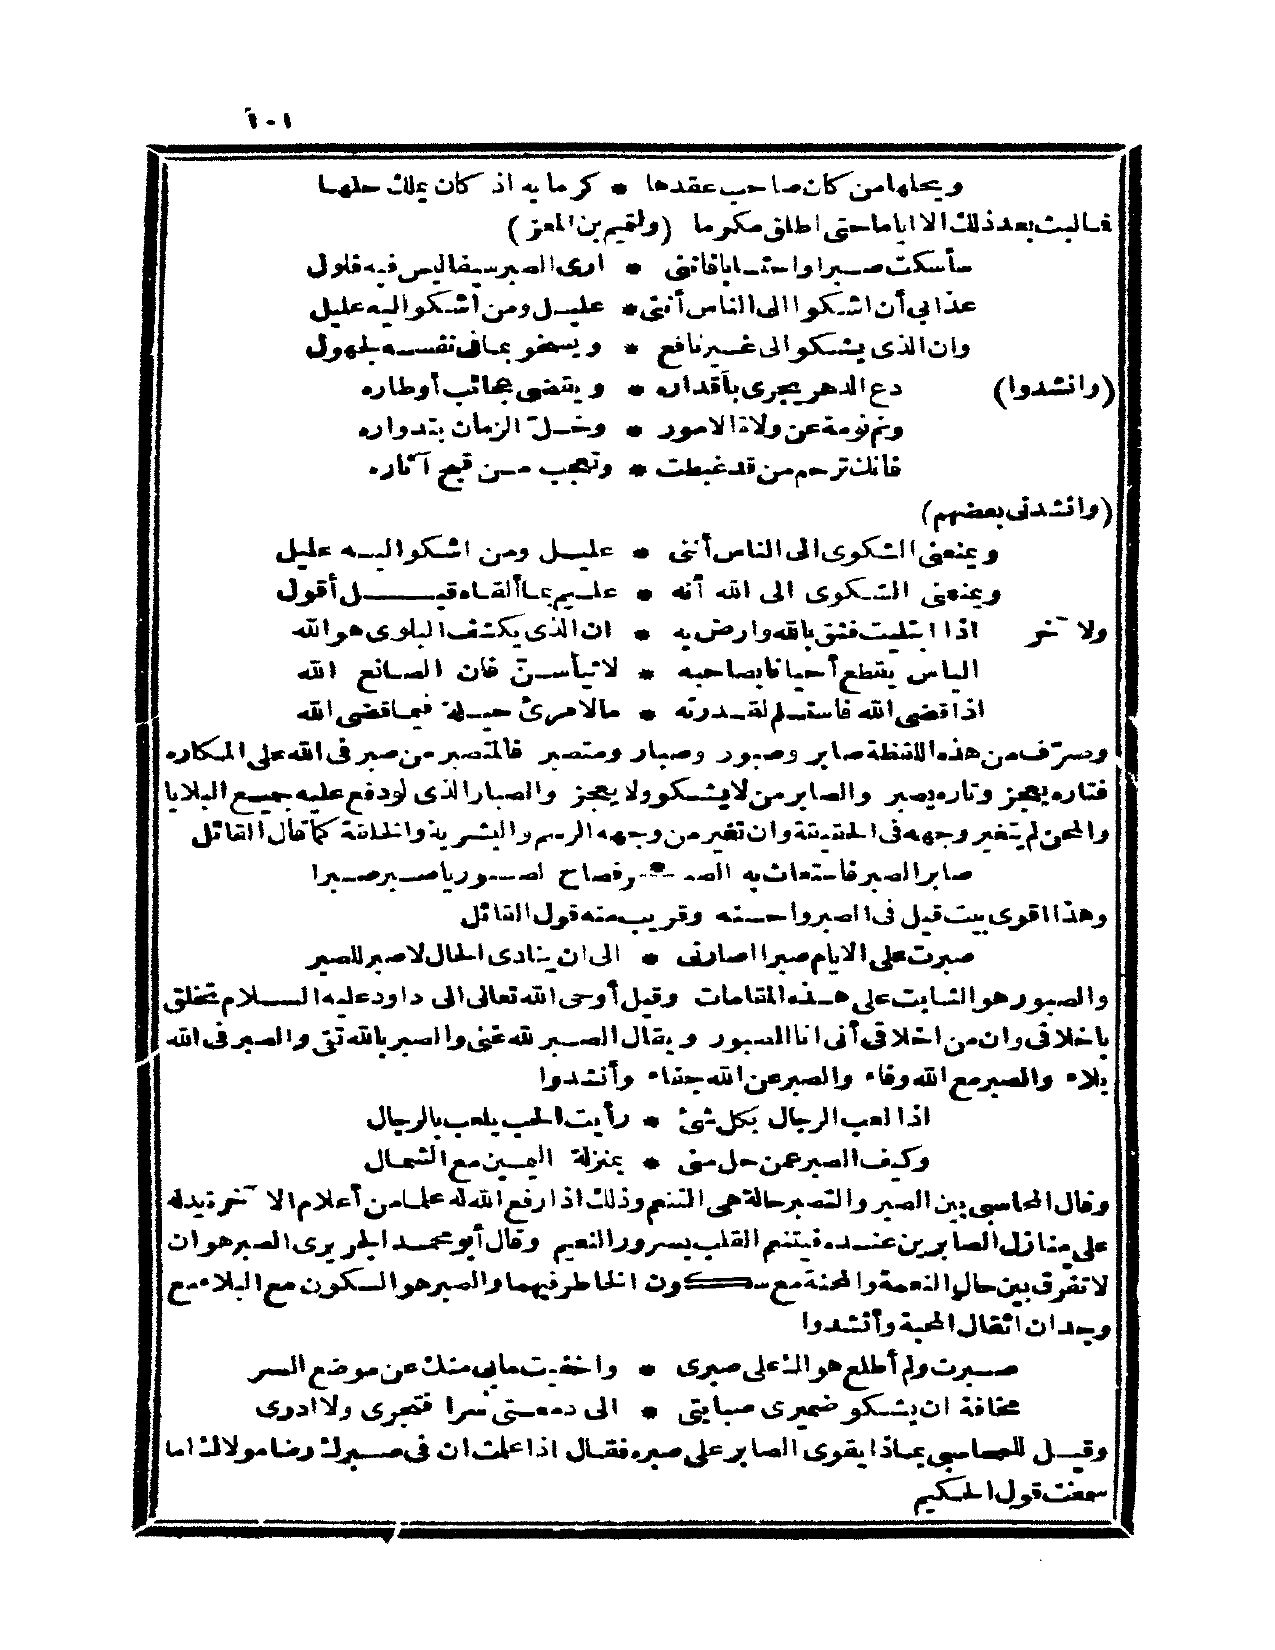 ١٠٦
ويحلها من كان صاحب عقدها * كرما به اذ كان يملك حلها
فما لبث بعد ذلك الا اياما حتى اطلق مكرما (ولتميم بن المعز)
سأسكت صبرا واحتسابا فاننى * ارى الصبر سيفا ليس فيه فلول
عذابى أن اشكو الى الناس أننى * عليل ومن أشكو اليه عليل
وان الذى يشكو الى غير نافع * ويسخو بما فى نفسه لجهول
(وانشدوا) دع الدهر يجرى بأقداره * ويقضى عجائب أوطاره
ونم نومة عن ولاة الامور * وخل الزمان بتدواره
فانك ترحم من قد غبطت * وتعجب من قبح آثاره
(وانشدنى بعضهم)
ويمنعنى الشكوى الى الناس أننى * عليل ومن اشكو اليه عليل
ويمنعنى الشكوى الى الله أنه * عليم بما ألقاه قبل أقول
ولآخر اذا ابتليت فثق بالله وارض به * ان الذى يكشف البلوى هو الله
الياس يقطع أحيانا بصاحبه * لا تيأسن فان الصانع الله
اذا قضى الله فاستسلم لقدرته * ما لامرئ حيلة فيما قضى الله
وصرّف من هذه اللفظة صابر وصبور وصبار ومتصبر فالمتصبر من صبر فى الله على المكاره
فتارة يعجز وتارة يصبر والصابر من لا يشكو ولا يعجز والصبار الذى لو دفع عليه جميع البلايا
والمحن لم يتغير وجهه فى الحقيقة وان تغير من وجهه الرسم والبشرية والخلقة كما قال القائل
صابر الصبر فاستغاث به الصبر فصاح الصبور يا صبر صبرا
وهذا اقوى بيت قيل فى الصبر واحسنه وقريب منه قول القائل
صبرت على الايام صبرا اصارنى * الى ان ينادى الحال لا صبر للصبر
والصبور هو الثابت على هذه المقامات وقيل أوحى الله تعالى الى داود عليه السلام تخلق
باخلاقى وان من اخلاقى أنى انا الصبور ويقال الصبر لله غنى والصبر بالله تقى والصبر فى الله
بلاء والصبر مع الله وفاء والصبر عن الله جفاء وأنشدوا
اذا لعب الرجال بكل شئ * رأيت الحب يلعب بالرجال
وكيف الصبر عمن حل منى * بمنزلة اليمين مع الشمال
وقال المحاسبى بين الصبر والتصبر حالة هى التنعم وذلك اذا رفع الله له علما من أعلام الآخرة يدله
على منازل الصابرين عنده فيتنعم القلب بسرور النعيم وقال أبو محمد الجريرى الصبر هو ان
لا تفرق بين حال النعمة والمحنة مع سكون الخاطر فيهما والصبر هو السكون مع البلاء مع
وجدان اثقال المحبة وأنشدوا
صبرت ولم أطلع هواك على صبرى * واخفيت ما بى منك عن موضع السر
مخافة ان يشكو ضميرى صبابتى * الى دمعتى سرا فتجرى ولا ادرى
وقيل للمحاسبى بماذا يقوى الصابر على صبره فقال اذا علمت ان فى صبرك رضا مولاك اما
سمعت قول الحكيم